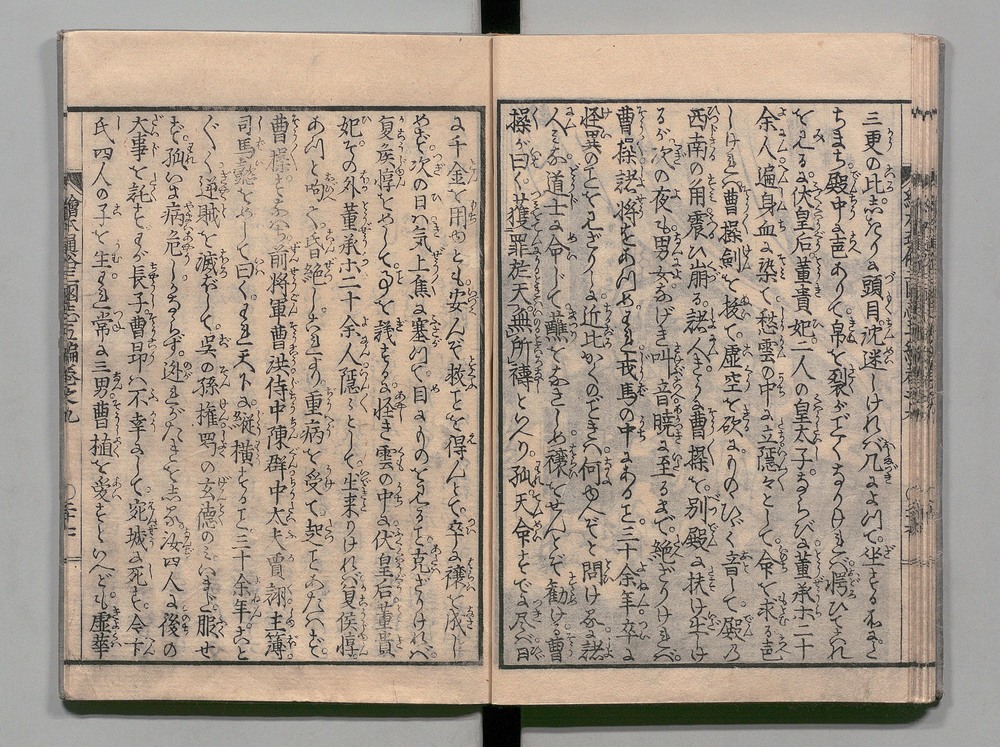 三更の比しきりに頭目沈迷しければ几によつて坐せる
たちまち殿中に声ありて帛を裂がごとくなりければ愕ひてこれ
をみるに伏皇后董貴妃二人の皇太子ならびに董承ホ二十
余人遍身血に染て愁雲の中に立隠々として命を求る声
しければ曹操剣を抜て虚空を砍にものひゞく音して殿乃
西南の角震ひ崩る諸人きたり曹操を別殿に扶け出しけ
るが次の夜も男女なげき叫音暁に至るまで絶ざりければ
曹操諸将をあつめわれ戎馬の中にあること三十余年卒に
怪異のことを見ざりしに近比かくのごときハ何ゆへぞと問ければ諸
人みな道士に命じて醮をなさしめ禳せんことを勧ける曹
操が曰く獲罪於天無所禱といへり孤天命すでに尽べ日
に千金を用ゆとも安んぞ救ことを得んとて卒に禳を成し
めず次の日ハ気上焦に塞つて目にものを見ること克ざりければ
夏侯惇をめして事を議するに怪き雲の中に伏皇后董貴
妃その外董承ホ二十余人隠々として生来りければ夏侯惇
あつと叫て昏絶しこれより重病を受て起ことあたはず
曹操また前将軍曹洪侍中陳群中大夫賈詡主簿
司馬懿をめして曰くわれ天下に縦横すること三十余年こと
ごとく逆賊を滅ぼして呉の孫権蜀の玄徳のミいまだ服せ
ず孤いま病危しるならず逃れがたきことをしる汝四人に後の
大事を託すわが長子曹昂ハ不幸にして宛城に死す今卞
氏四人の子を生われ常に三男曹植を愛すといへども虚華
繪本通俗三國志五編巻之九